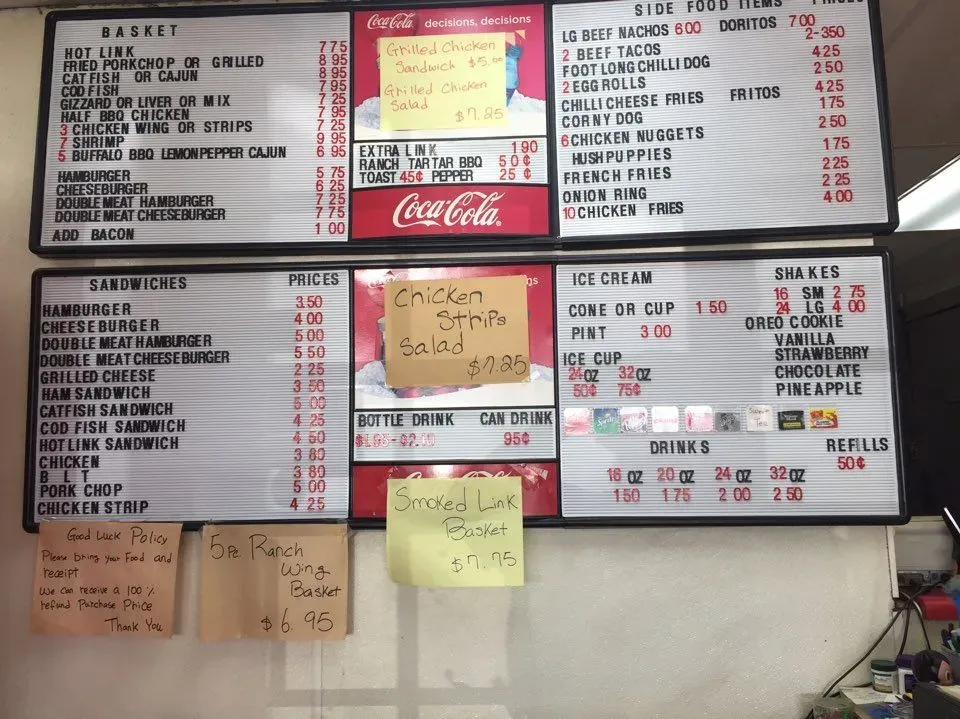 BASKET
HOT LINK 7 75
FRIED PORKCHOP OR GRILLED 8 95
CATFISH OR CAJUN 8 95
COD FISH 7 95
GIZZARD OR LIVER OR MIX 7 25
HALF BBQ CHICKEN 7 95
3 CHICKEN WING OR STRIPS 7 25
7 SHRIMP 9 95
5 BUFFALO BBQ LEMONPEPPER CAJUN 6 95
HAMBURGER 5 75
CHEESEBURGER 6 25
DOUBLE MEAT HAMBURGER 7 25
DOUBLE MEAT CHEESEBURGER 7 75
ADD BACON 1 00
Coca-Cola decisions, decisions
Grilled Chicken
Sandwich $5.00
Grilled Chicken
Salad
$7.25
EXTRA LINK 1 90
RANCH TARTAR BBQ 50¢
TOAST 45¢ PEPPER 25¢
Coca-Cola
SIDE FOOD ITEMS
LG BEEF NACHOS 6 00 DORITOS 7 00
2 BEEF TACOS 2-3 50
FOOT LONG CHILLI DOG 4 25
2 EGG ROLLS 2 50
CHILLI CHEESE FRIES FRITOS 4 25
CORNY DOG 1 75
6 CHICKEN NUGGETS 2 50
HUSHPUPPIES 1 75
FRENCH FRIES 2 25
ONION RING 2 25
10 CHICKEN FRIES 4 00
SANDWICHES PRICES
HAMBURGER 3.50
CHEESEBURGER 4 00
DOUBLE MEAT HAMBURGER 5 00
DOUBLE MEAT CHEESEBURGER 5 50
GRILLED CHEESE 2 25
HAM SANDWICH 3 50
CATFISH SANDWICH 5 00
COD FISH SANDWICH 4 25
HOT LINK SANDWICH 4 50
CHICKEN 3 80
B L T 3 80
PORK CHOP 5 00
CHICKEN STRIP 4 25
Chicken
Strips
Salad
$7.25
BOTTLE DRINK CAN DRINK
95¢
Smoked Link
Basket
$7.75
ICE CREAM
CONE OR CUP 1 50
PINT 3 00
ICE CUP
24OZ 32OZ
50¢ 75¢
SHAKES
16 SM 2 75
24 LG 4 00
OREO COOKIE
VANILLA
STRAWBERRY
CHOCOLATE
PINEAPPLE
Sprite
DRINKS REFILLS
50¢
16 OZ 20 OZ 24 OZ 32 OZ
1 50 1 75 2 00 2 50
Good Luck Policy
Please bring your Food and
receipt
We can receive a 100%
refund Purchase Price
Thank You
5 Pc. Ranch
Wing
Basket
$6.95